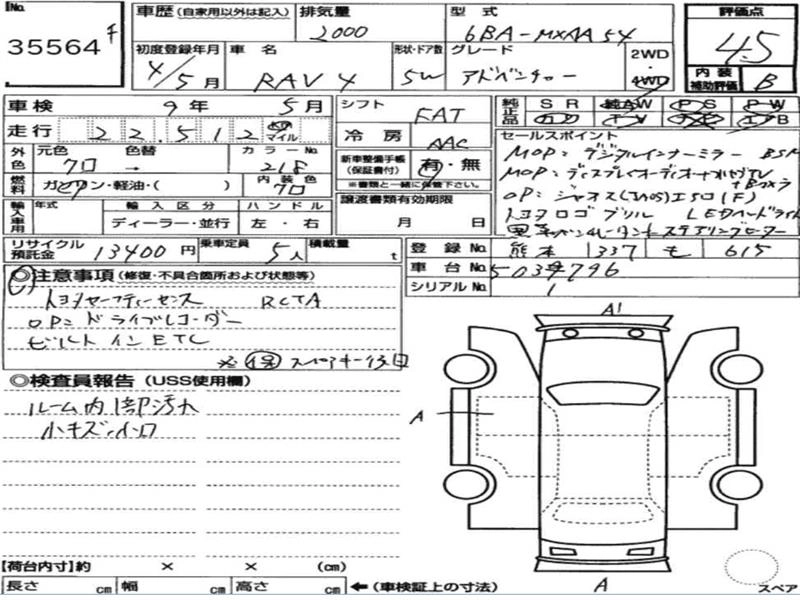 No. 35564
車歴 (自家用以外は記入) 排気量 2000 型式 6BA-MXAA54 評価点 4.5
初度登録年月 4/5月 車名 RAV4 形状・ドア数 5W グレード アドベンチャー 2WD 4WD 内装補助評価 B
車検 9年 5月 シフト FAT 純正品 SR 純AW PS PW
走行 22,512 マイル 冷房 AAC カワ TV エアB
外色 元色 色替 カラーNo. 218 新車整備手帳(保証書付) 有・無 ※書類と一緒に保管下さい。
セールスポイント
MOP: デジタルインナーミラー BSM
MOP: ディスプレイオーディオ
OP:
トヨタロゴグリル LEDヘッドライト
燃料 ガソリン・軽油・( ) 内装色
輸入車用 年式 輸入区分 ハンドル 譲渡書類有効期限
ディーラー・並行 左・右 月 日
リサイクル預託金 13400円 乗車定員 5人 積載量 t 登録No. 熊本 337 も 615
車台No. 5034796
シリアルNo. 1
◎注意事項 (修復・不具合個所および状態等)
トヨタセーフティーセンス RCTA
OP: ドライブレコーダー
ビルトインETC
※ 得 スペアキー後日
◎検査員報告 (USS使用欄)
ルーム内 1部汚れ
小キズ、小凹
A1
A
A
スペア
【荷台内寸】約 × × (cm)
長さ cm 幅 cm 高さ cm ←(車検証上の寸法)